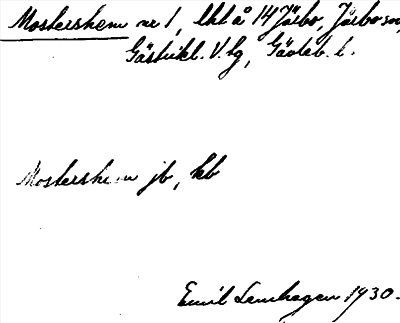 Mostershem nr 1, lht å 14 Järbo, Järbo sn,
Gästrikl. V. tg, Gävleb. l.
Mostershem jb, kb
Emil Lenhagen 1930.